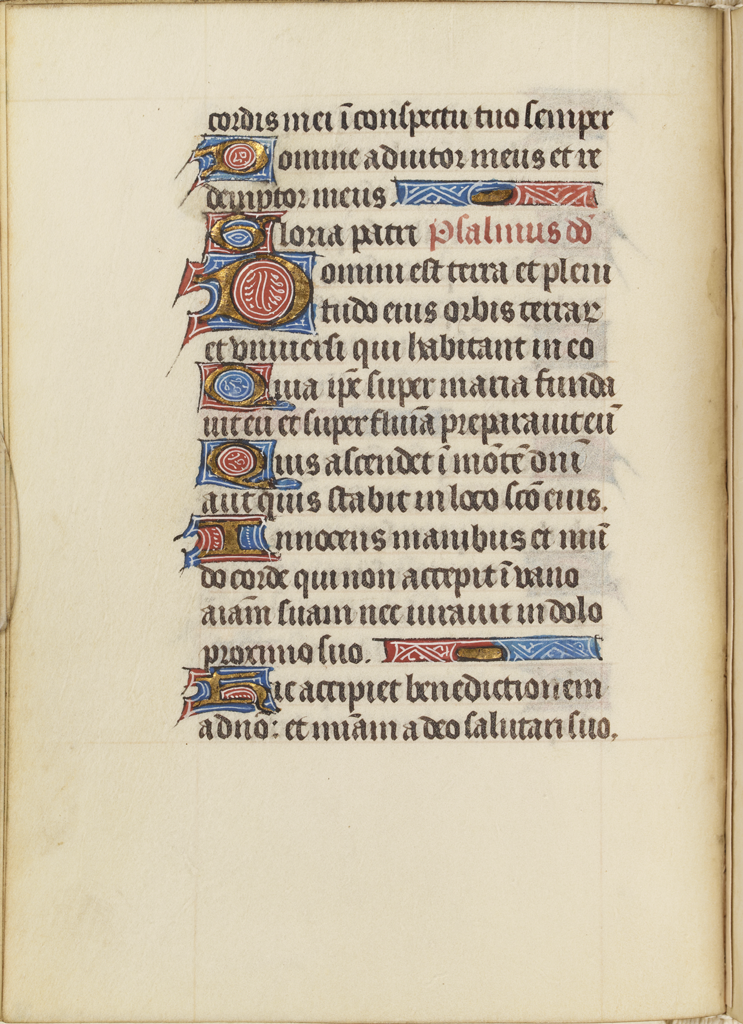 cordis mei ī conspectu tuo semper
Domine adiutor meus et re
demptor meus
Gloria patri Psalmus dd
Domini est terra et pleni
tudo eius orbis terrar
et vniuersi qui habitant in eo
Quia ip̄e super maria funda
uit eū et super flumīa preparauit eū
Quis ascendet ī mōtē dnī
aut quis stabit in loco scō eius.
Innocens manibus et mū
do corde qui non accepit ī vano
aīam suam nec iurauit in dolo
proximo suo.
Hic accipiet benedictionem
a dnō: et mīam a deo salutari suo.